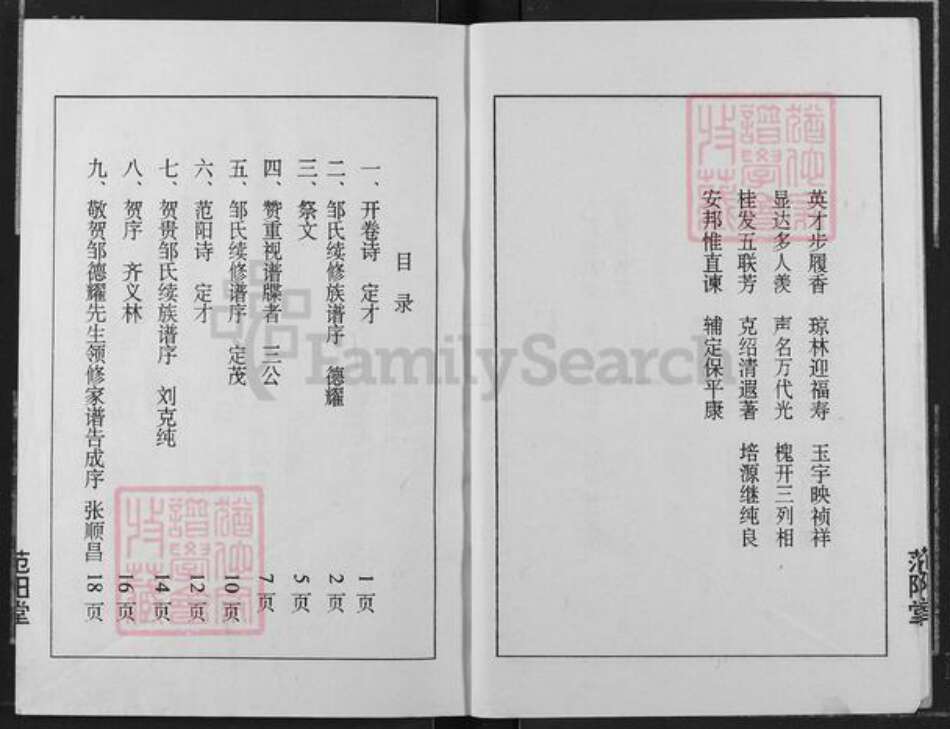 英才步履香 琼林迎福寿 玉宇映祯祥
显达多人羡 声名万代光 槐开三列相
桂发五联芳 克绍清遐著 培源继纯良
安邦惟直谏 辅定保平康
范阳堂
目录
一、开卷诗 定才 1页
二、邹氏续修族谱序 德耀 2页
三、祭文 5页
四、赞重视谱牒者 三公 7页
五、邹氏续修谱序 定茂 10页
六、范阳诗 定才 12页
七、贺贵邹氏续族谱序 刘克纯 14页
八、贺序 齐义林 16页
九、敬贺邹德耀先生领修家谱告成序 张顺昌 18页
范阳堂
FamilySearch